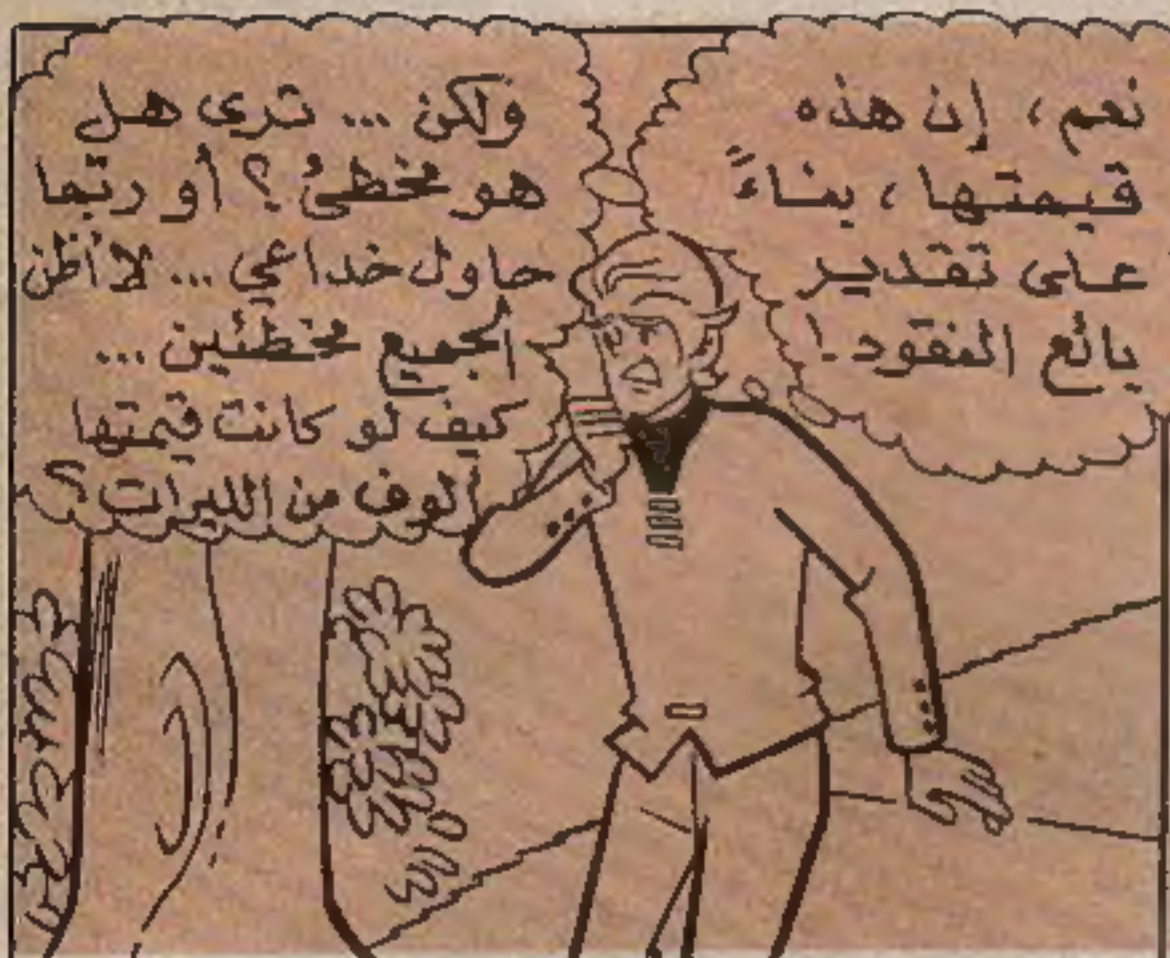 نعم، إن هذه
قيمتها، بناءً
على تقدير
بائع النقود!
ولكن... ترى هل
هو مخطئ؟ أو ربّما
حاول خداعي... لا أظن
الجميع مخطئين...
كيف لو كانت قيمتها
ألوف من الليرات؟